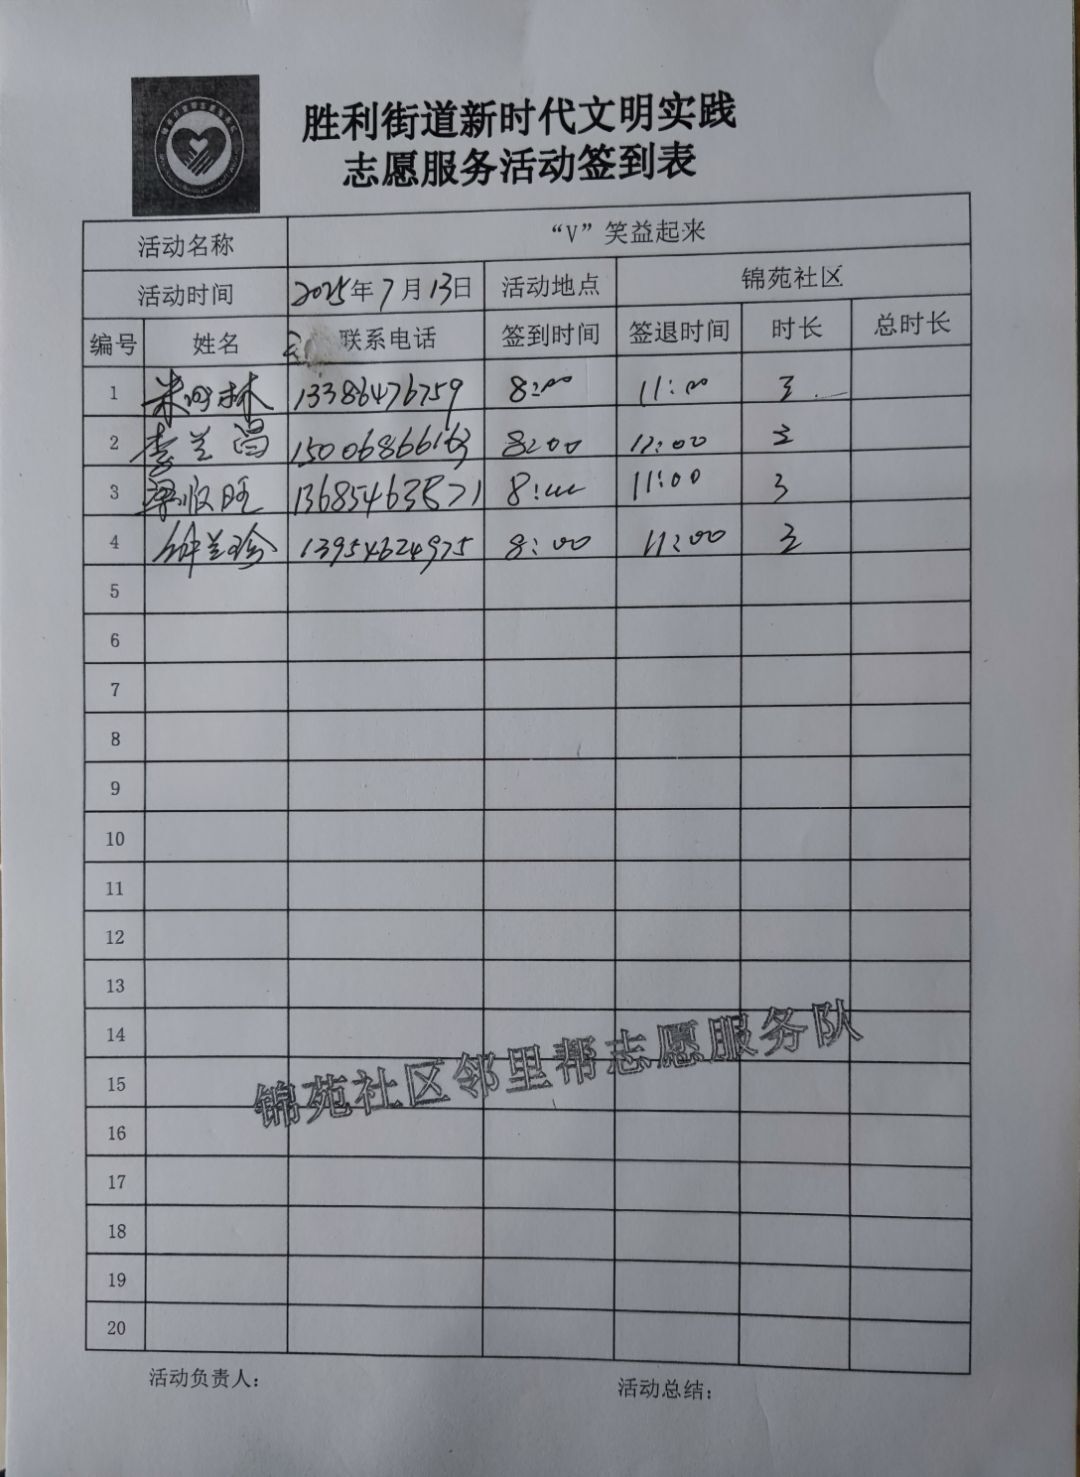 胜利街道新时代文明实践
志愿服务活动签到表
活动名称 “V”笑益起来
活动时间 2025年7月13日 活动地点 锦苑社区
编号 姓名 联系电话 签到时间 签退时间 时长 总时长
1 林 13386476759 8:00 11:00 3
2 李兰 15006866163 8:00 12:00 3
3 梁顺旺 13685463571 8:00 11:00 3
4 钟兰珍 13954624975 8:00 11:00 3
5
6
7
8
9
10
11
12
13
14
15
16
17
18
19
20
锦苑社区邻里帮志愿服务队
活动负责人：
活动总结：